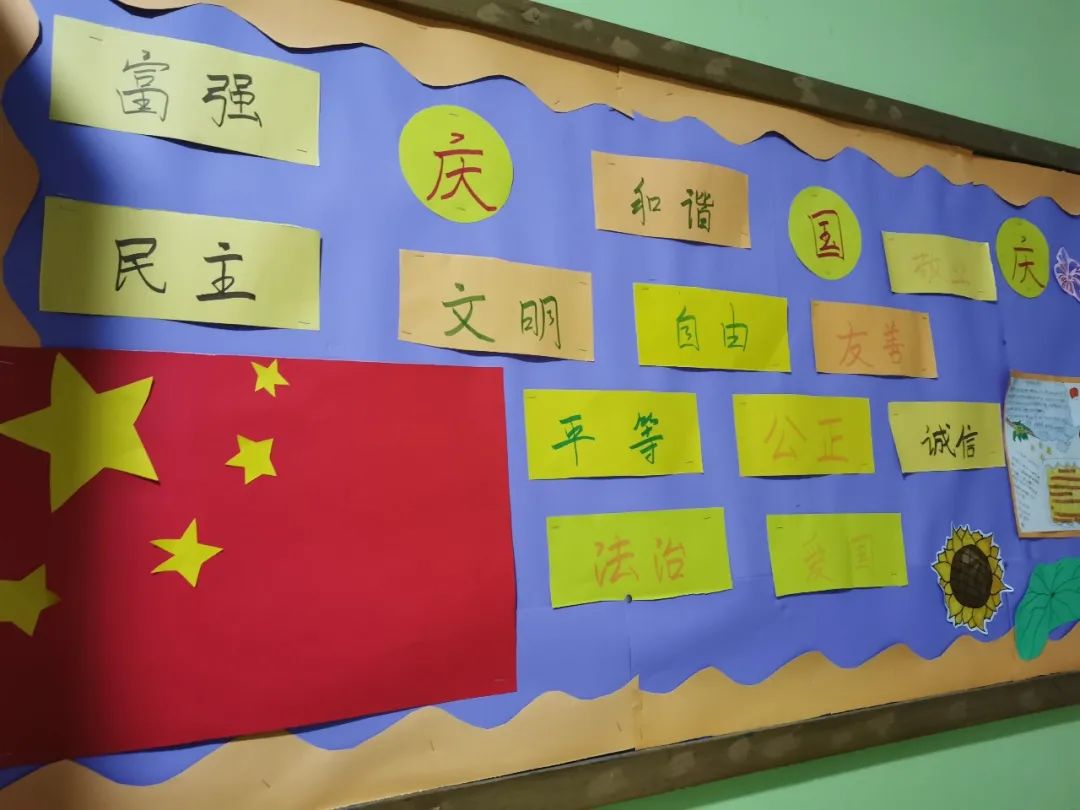 富强
庆
和谐
国
敬业
庆
民主
文明
自由
友善
平等
公正
诚信
法治
爱国